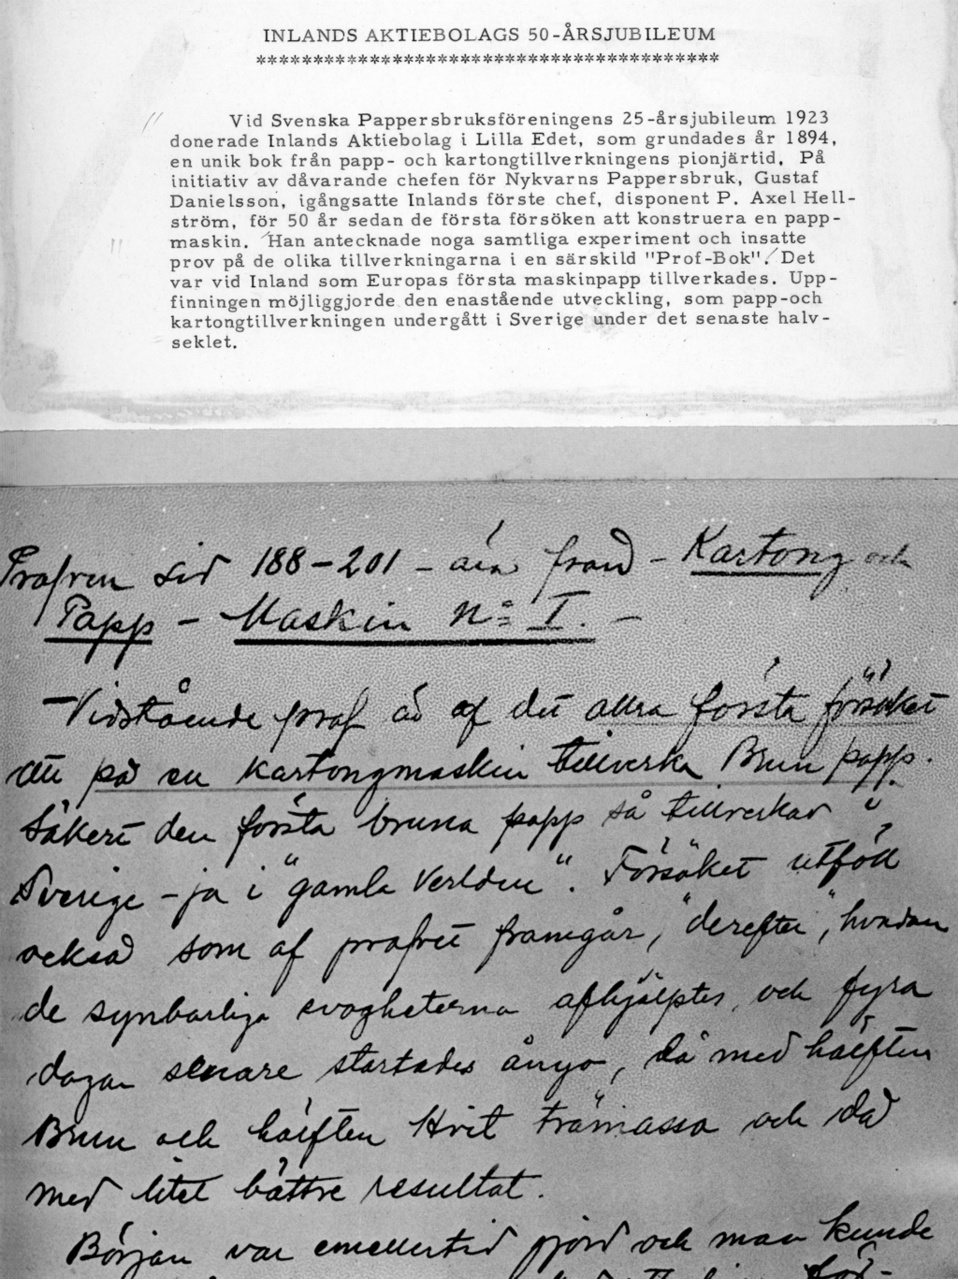 INLANDS AKTIEBOLAGS 50-ÅRSJUBILEUM
****************************************
" Vid Svenska Pappersbruksföreningens 25-årsjubileum 1923
donerade Inlands Aktiebolag i Lilla Edet, som grundades år 1894,
en unik bok från papp- och kartongtillverkningens pionjärtid. På
initiativ av dåvarande chefen för Nykvarns Pappersbruk, Gustaf
Danielsson, igångsatte Inlands förste chef, disponent P. Axel Hell-
ström, för 50 år sedan de första försöken att konstruera en papp-
" maskin. Han antecknade noga samtliga experiment och insatte
prov på de olika tillverkningarna i en särskild "Prof-Bok". Det
var vid Inland som Europas första maskinpapp tillverkades. Upp-
finningen möjliggjorde den enastående utveckling, som papp-och
kartongtillverkningen undergått i Sverige under det senaste halv-
seklet.
Profven sid 188-201 - från - Kartong och
Papp - Maskin No I. -
- Vidstående prof är af det allra första försöket
att på en kartongmaskin tillverka Brun papp.
Säkert den första bruna papp så tillverkad i
Sverige - ja i "gamla Verlden". Försöket utföll
också som af profvet framgår, "derefter", hvadan
de synbarliga svagheterna afhjälptes, och fyra
dagar senare startades ånyo, då med hälften
Brun och hälften Hvit trämassa och då
med litet bättre resultat.
Början var emellertid gjord och man kunde
för-